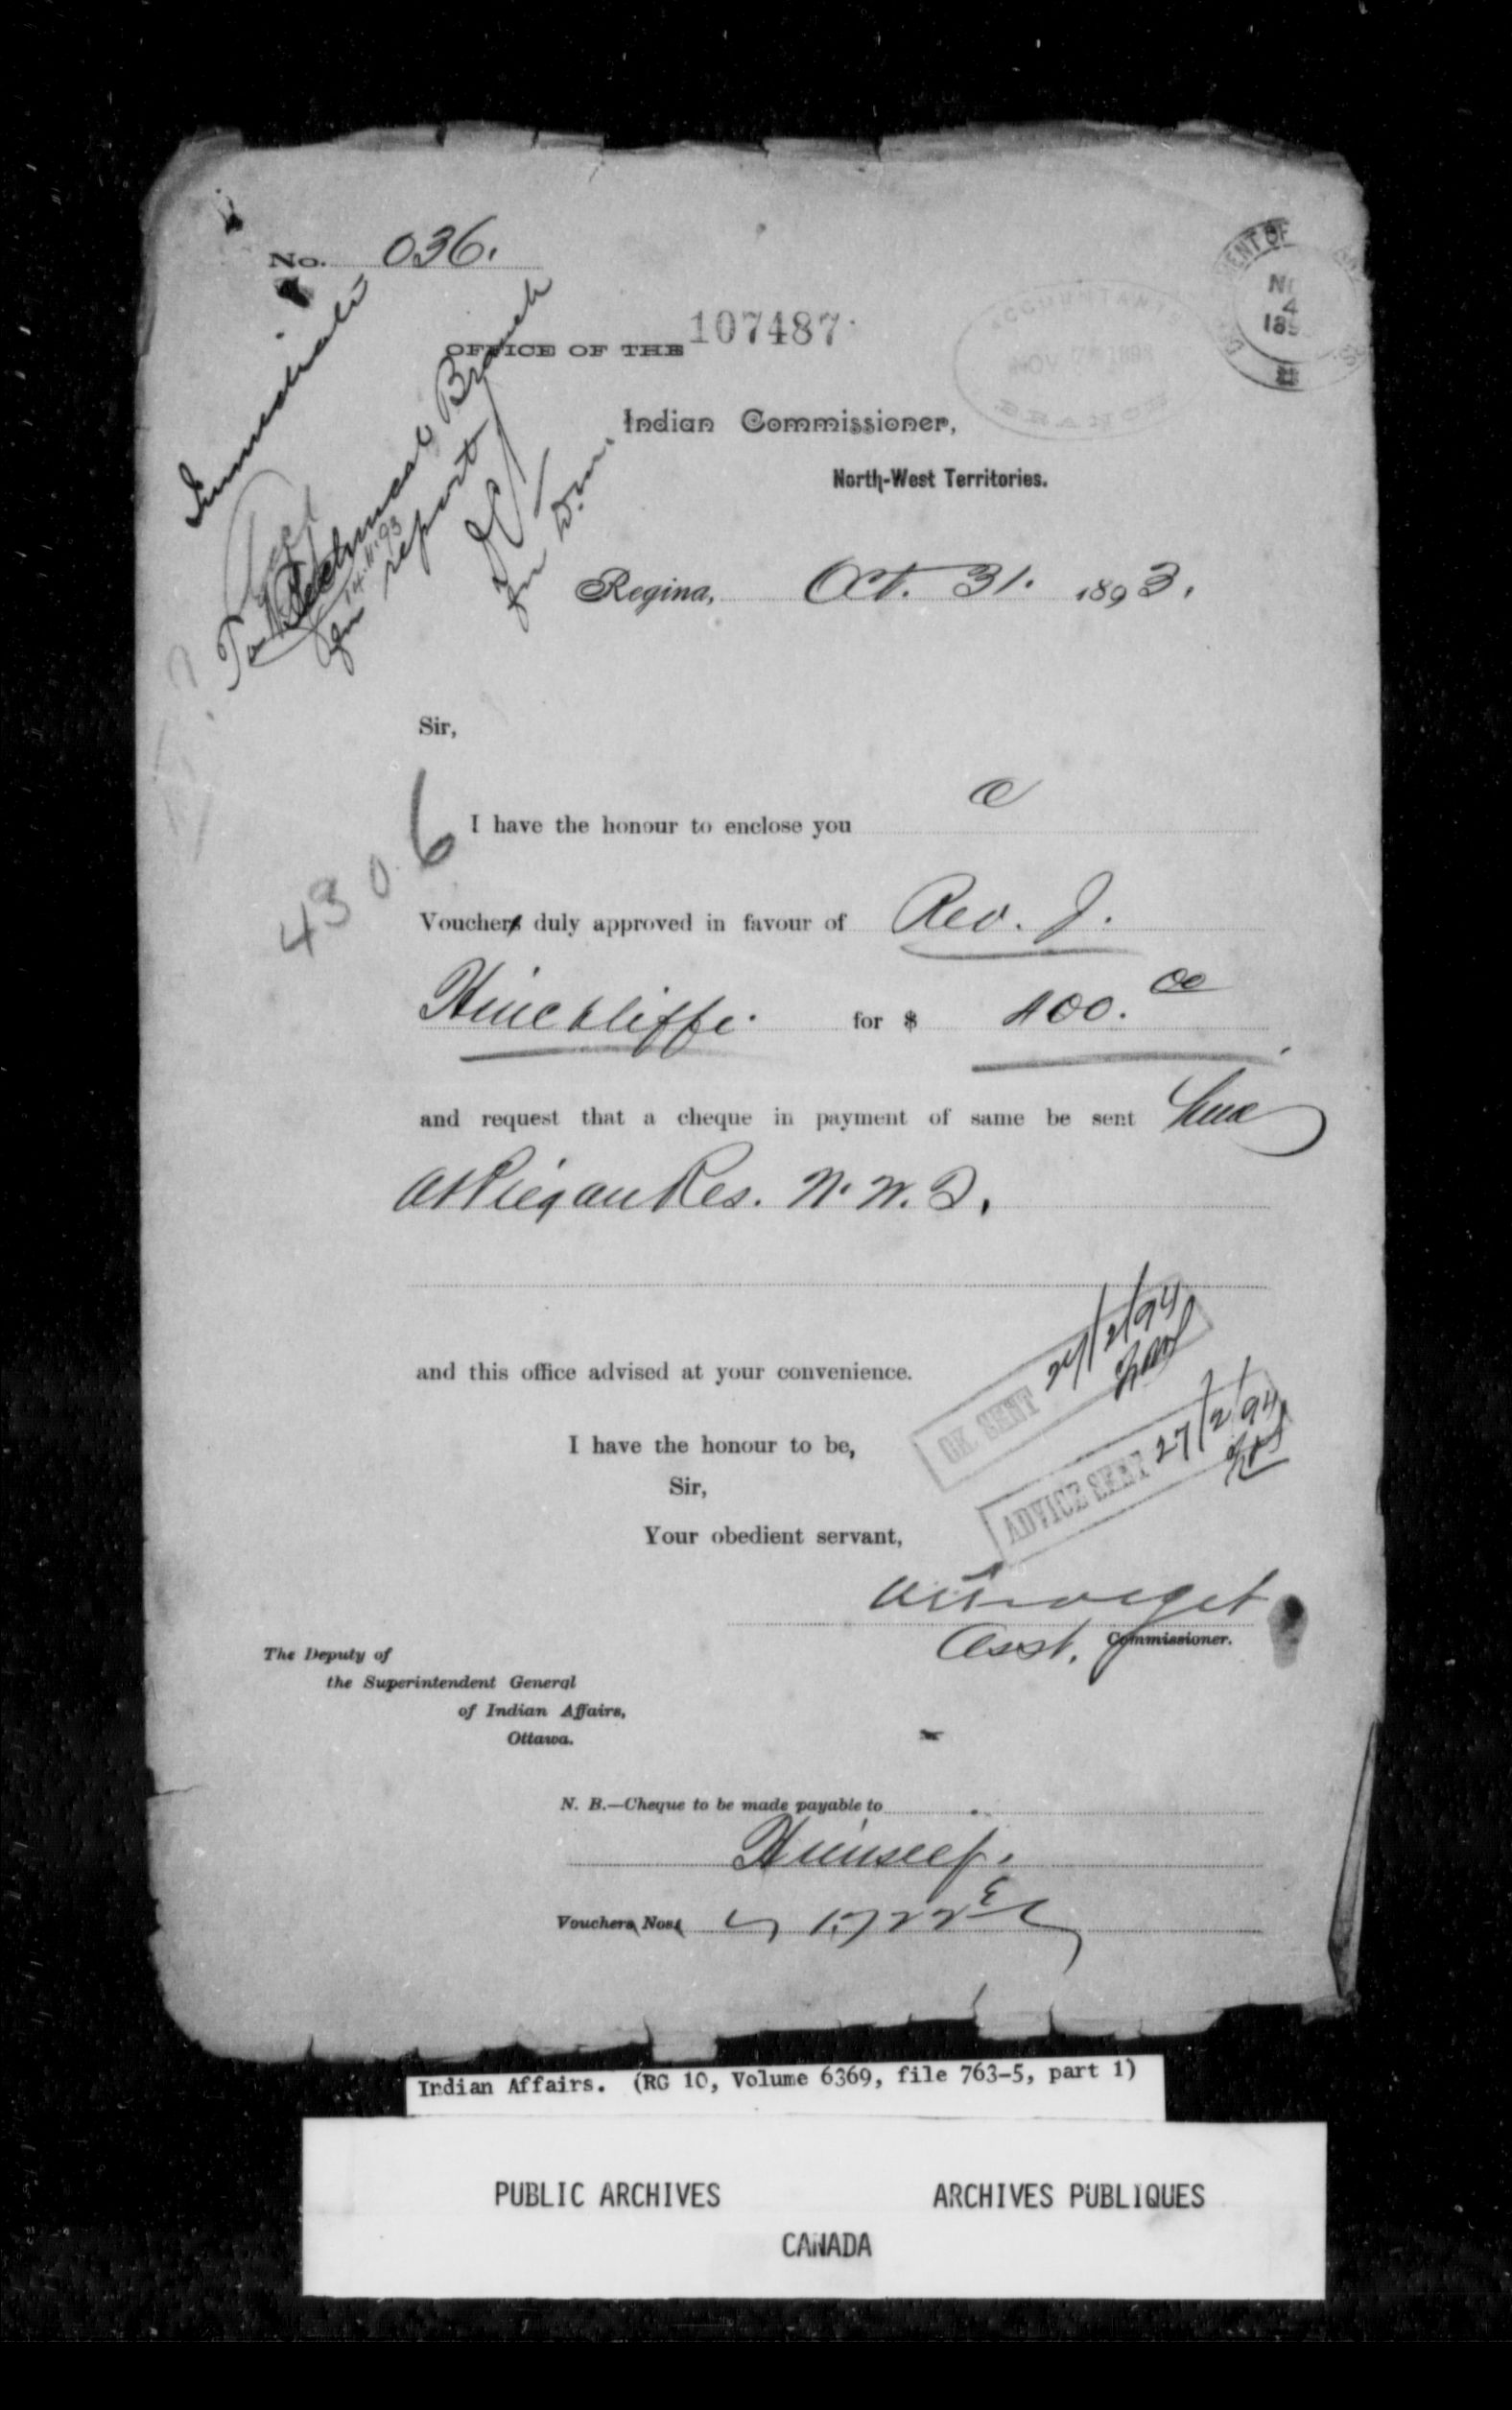 No. 036.
Immediate
107487
OFFICE OF THE
Indian Commissioner,
North-West Territories.
ACCOUNTANT'S
NOV 1893
To Technical Branch
for report
14.11.93
for D.M.
Regina, Oct. 31. 1893.
Sir,
4306
I have the honour to enclose you a
Vouchers duly approved in favour of Rev. J.
Hinchliffe. for $ 400.00
and request that a cheque in payment of same be sent him
at Piegan Res. N.W.T.
and this office advised at your convenience.
CK. SENT 27/2/94
I have the honour to be,
Sir,
ADVICE SENT 27/2/94
Your obedient servant,
Asst. Commissioner.
The Deputy of
the Superintendent General
of Indian Affairs,
Ottawa.
N. B.—Cheque to be made payable to
Himself.
Vouchers Nos.
Indian Affairs. (RG 10, Volume 6369, file 763-5, part 1)
PUBLIC ARCHIVES ARCHIVES PUBLIQUES
CANADA